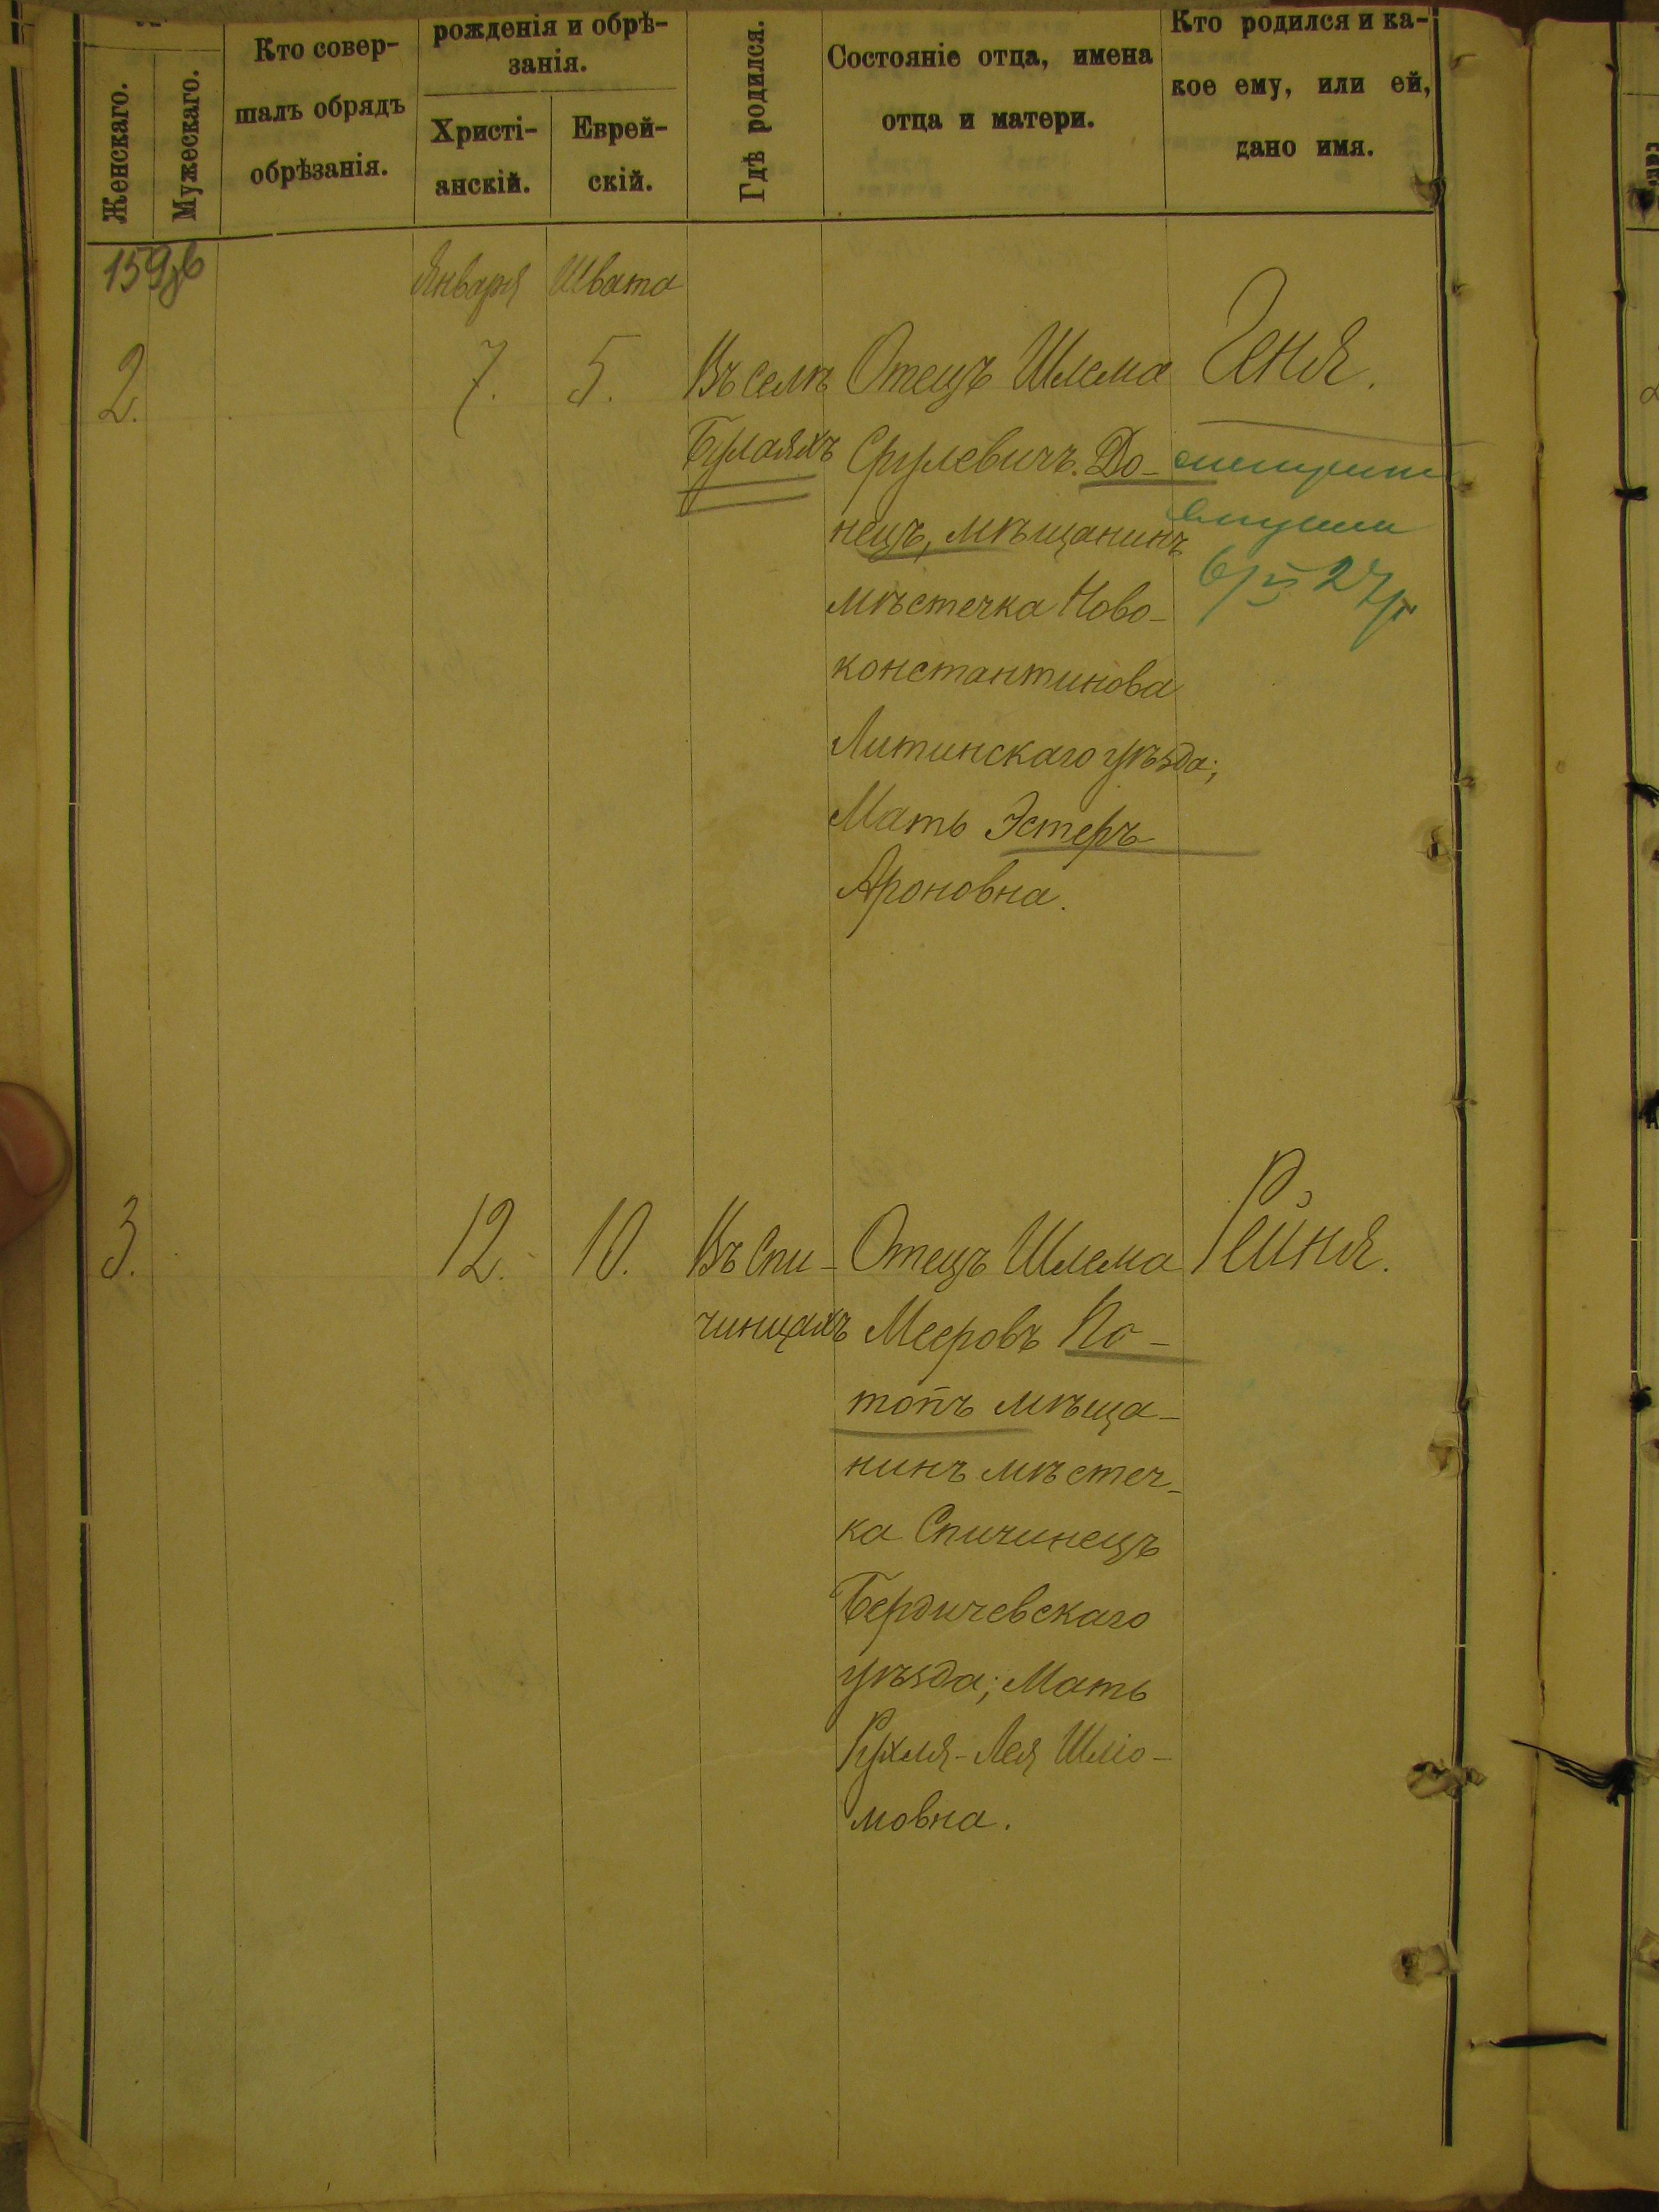 Женскаго.
Мужескаго.
Кто совер-
шалъ обрядъ
обрѣзанія.
рожденія и обрѣ-
занія.
Христі-
анскій.
Еврей-
скій.
Гдѣ родился.
Состояніе отца, имена
отца и матери.
Кто родился и ка-
кое ему, или ей,
дано имя.
Января Швата
2.
7.
5.
Въ селѣ
Булаяхъ
Отецъ Шлема
Срулевичъ До-
нецъ, мѣщанинъ
мѣстечка Ново-
константинова
Литинскаго уѣзда;
Мать Эстеръ
Ароновна.
Геня.
3.
12.
10.
Въ Спи-
чинцахъ
Отецъ Шлема
Мееровъ По-
топъ мѣща-
нинъ мѣстеч-
ка Спичинецъ
Бердичевскаго
уѣзда; Мать
Рухля-Лея Шлiо-
мовна.
Рейня.